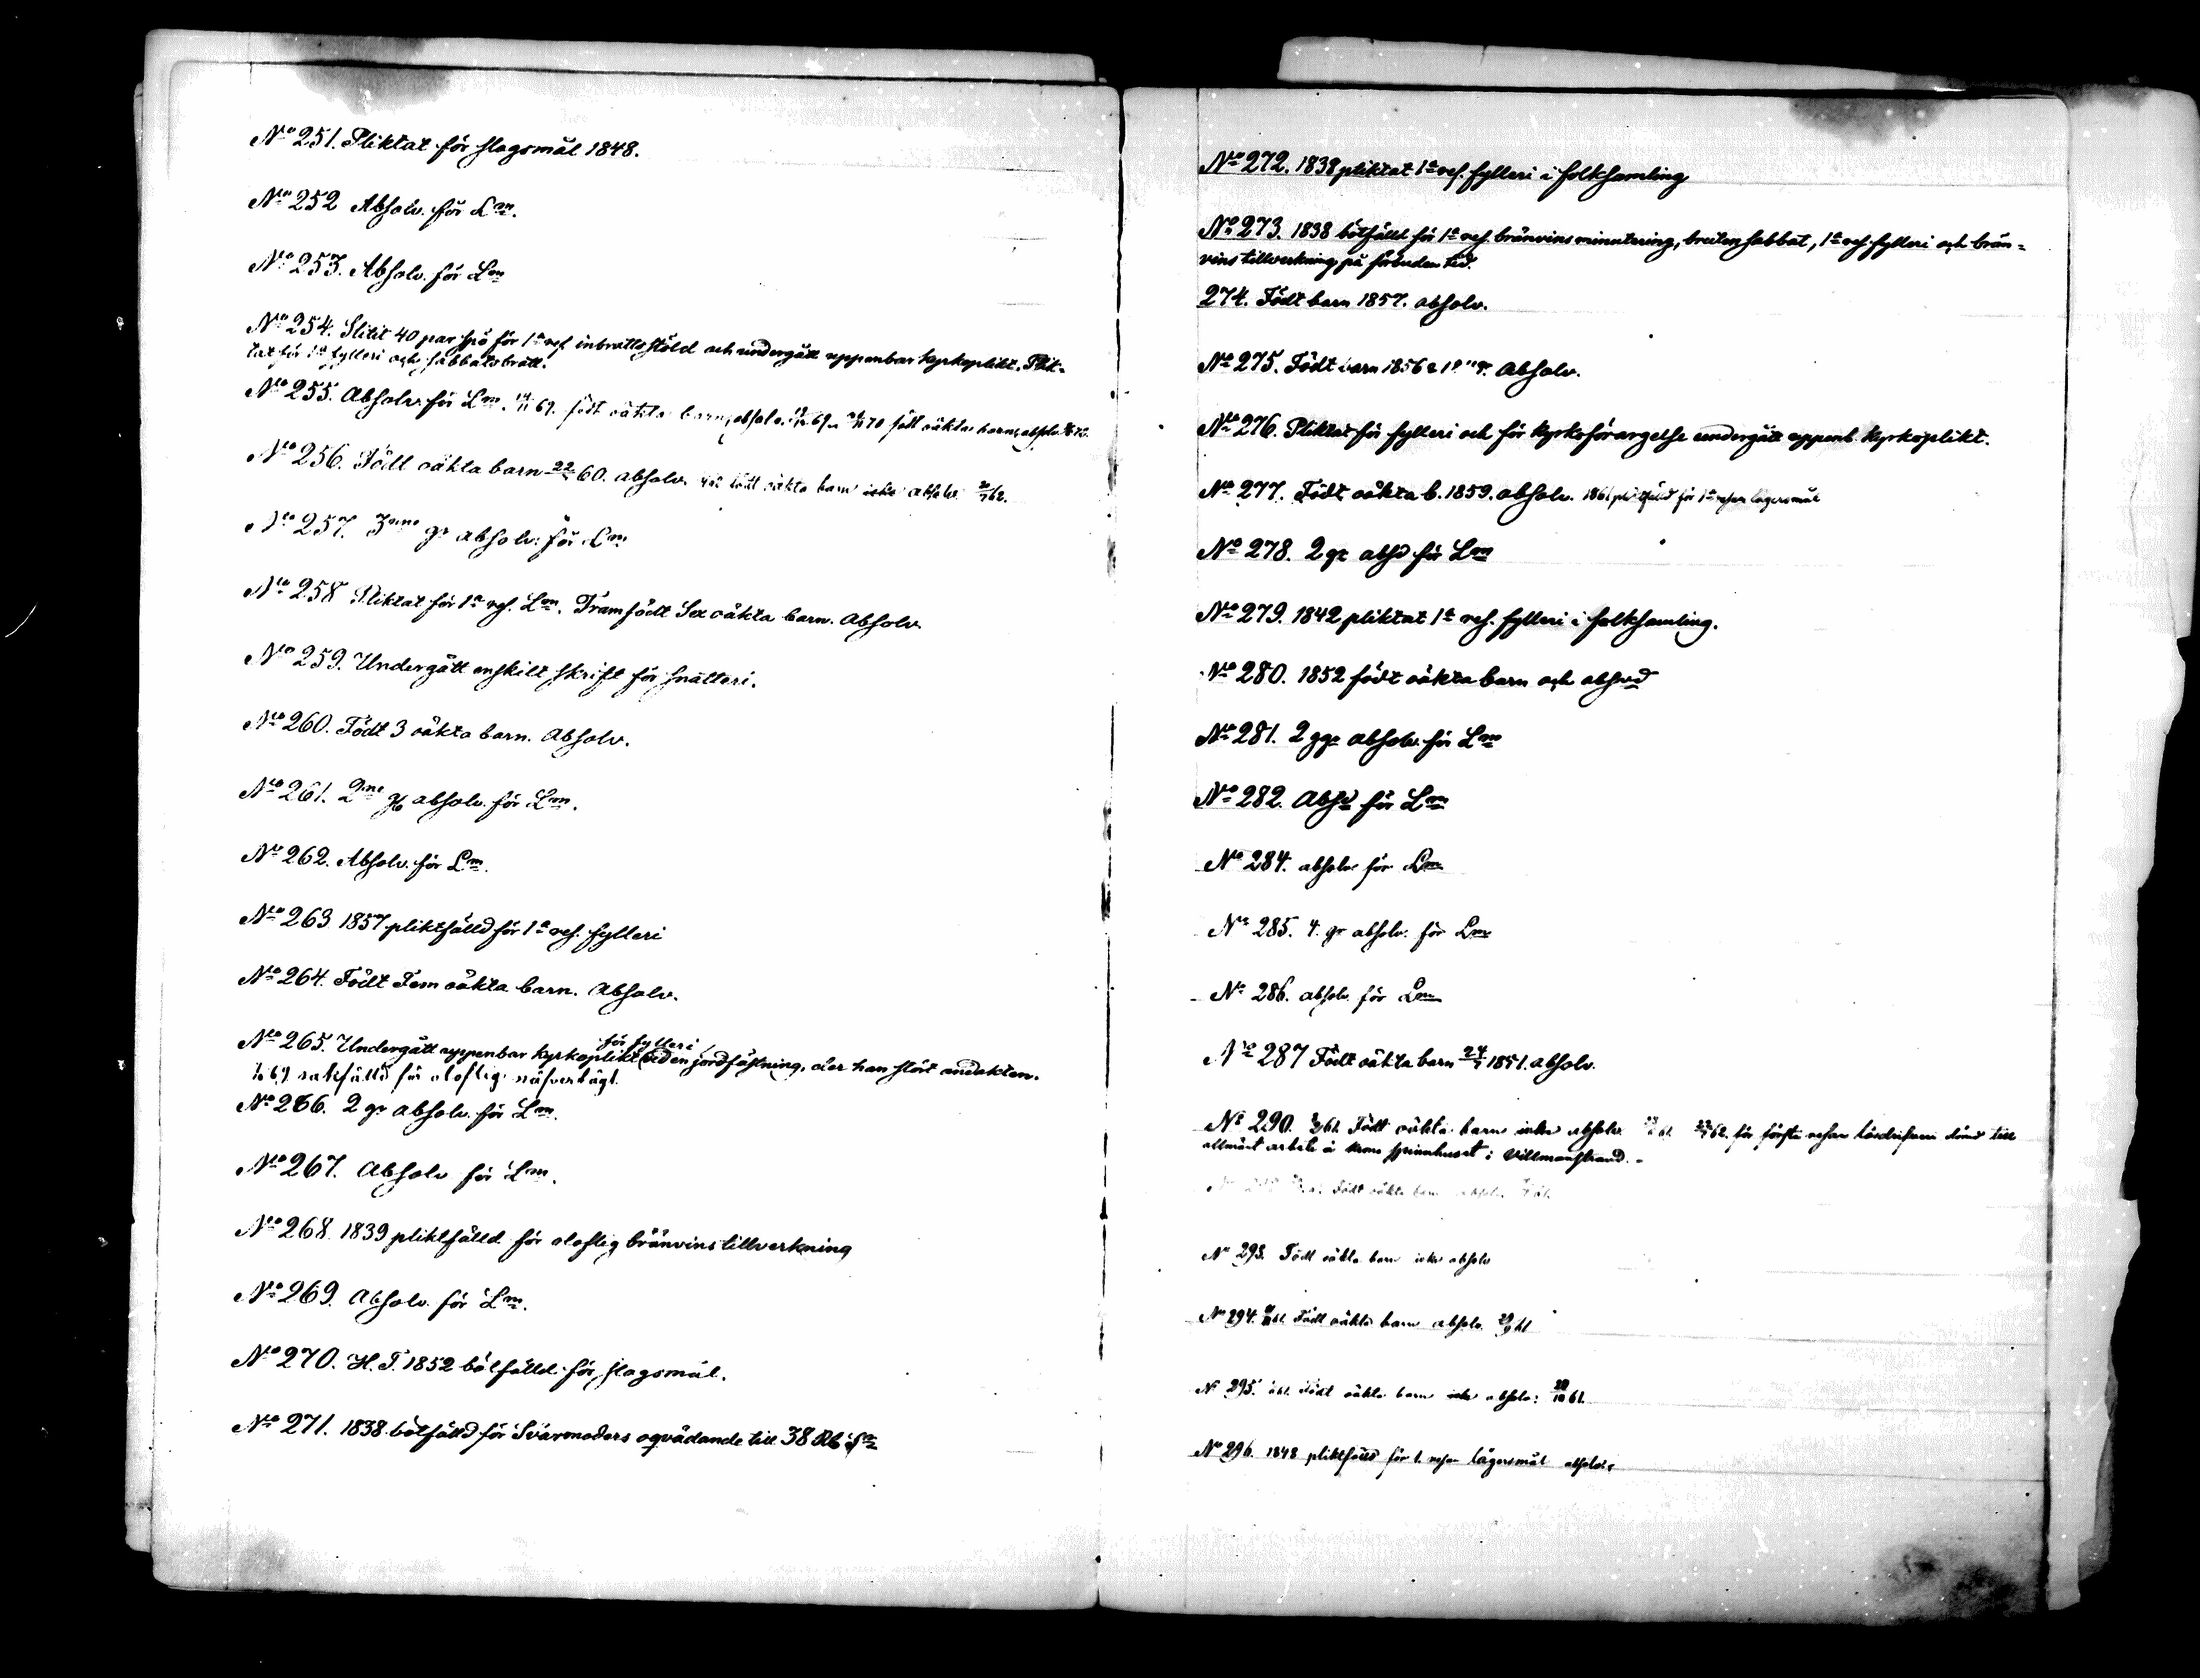 No 251. Pliktat för slagsmål 1848.
No 252 Absolv. för Lm.
No 253. Absolv. för Lm
No 254. Slitit 40 par spö för 1a res. inbrotts stöld och undergått uppenbar kyrkoplikt. Plik-
tat för 1a fylleri och sabbatsbrott.
No 255. Absolv. för Lm. 69. födt oäkta barn, absolv. 69. 70 födt oäkta barn, absolv.
No 256. Födt oäkta barn 60. absolv. födt oäkta barn icke absolv. 62.
No 257. 3ne gr absolv. för Lm
No 258 Pliktat för 1a res. Lm. Framfödt Sex oäkta barn. Absolv.
No 259. Undergått enskilt skrift för snatteri.
No 260. Födt 3 oäkta barn. Absolv.
No 261. 2ne gr absolv. för Lm.
No 262. Absolv. för Lm.
No 263 1857 pliktfälld för 1a res. fylleri
No 264. Födt Fem oäkta barn. Absolv.
för fylleri
No 265. Undergått uppenbar kyrkoplikt vid en jordfästning, der han stört andakten.
69 sakfälld för oloflig näfvertägt.
No 266. 2 gr absolv. för Lm.
No 267. Absolv för Lm.
No 268. 1839 pliktfälld för oloflig bränvins tillverkning
No 269. Absolv. för Lm.
No 270. H. T. 1852 bötfälld för slagsmål.
No 271. 1838 bötfälld för Svärmoders oqvädande till 38 Rb Sr
No 272. 1838 pliktat 1a res. fylleri i folksamling
No 273. 1838 bötfälld för 1a res. bränvins minutering, bruten sabbat, 1a res. fylleri och brän-
vins tillverkning på förbuden tid.
274. Födt barn 1857. absolv.
No 275. Födt barn 1856 Absolv.
No 276. Pliktat för fylleri och för kyrkoförargelse undergått uppenb. kyrkoplikt.
No 277. Födt oäkta b. 1859. absolv. 1861 pliktfälld för 1a resan lägersmål
No 278. 2 gr absd för Lm
No 279. 1842 pliktat 1a res. fylleri i folksamling.
No 280. 1852 födt oäkta barn och absvd
No 281. 2 ggr absolv. för Lm
No 282. Absd för Lm
No 284. absolv för Lm
No 285. 4. gr absolv. för Lm
No 286. absolv. för Lm
No 287 Födt oäkta barn 24/7 1851. absolv.
No 290. 61. Födt oäkta barn icke absolv. 61. 62. för första resan lösdrifveri dömd till
allmänt arbete å krono spinnhuset i Villmanstrand.
Födt oäkta barn absolv.
No 293. Födt oäkta barn icke absolv
No 294. 61. Födt oäkta barn absolv. 29/9 61
No 295. Födt oäkta barn icke absolv: 61.
No 296. 1848 pliktfälld för 1. resan lägersmål absolv.